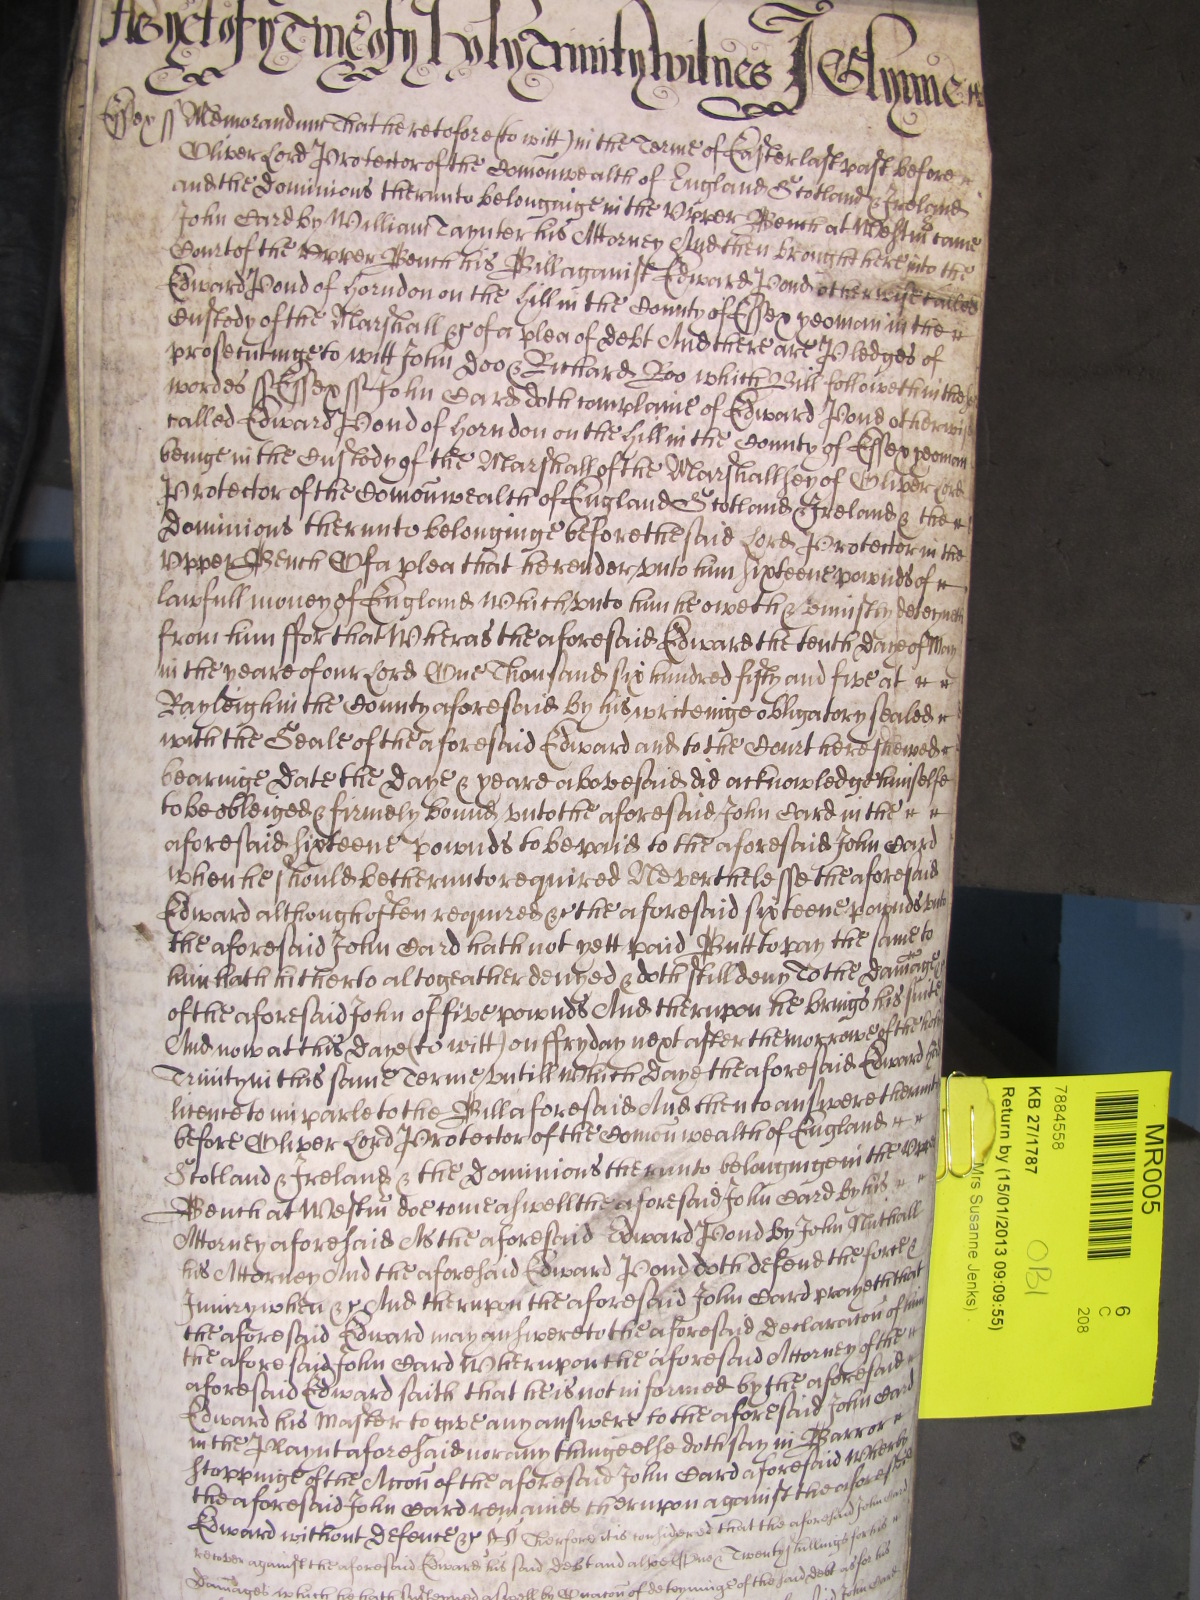 As yet of ye Terme of ye holy Trinity Witnes J Glynne
Essex ss Memorandum That heretofore (to witt) in the Terme of Easter last past before
Oliver Lord Protector of the Comonwealth of England Scotland & Ireland
and the Dominions therunto belonginge in the Upper Bench at Westm came
John Card by William Taynter his Attorney And then brought here into the
Court of the Upper Bench his Bill against Edward Pond otherwise called
Edward Pond of Horndon on the Hill in the County of Essex yeoman in the
Custody of the Marshall &c of a plea of debt And there are Pledges of
prosecutinge to witt John Doo & Richard Roo which Bill followeth in these
wordes ss Essex ss John Card doth complaine of Edward Pond otherwise
called Edward Pond of Horndon on the Hill in the County of Essex yeoman
beinge in the Custody of the Marshall of the Marshallsey of Oliver Lord
Protector of the Comonwealth of England Scotland & Ireland & the
Dominions therunto belonginge before the said Lord Protector in the
Upper Bench Of a plea that he render unto him sixteene pownds of
lawfull money of England Which unto him he oweth & uniustly deteyneth
from him ffor that Wheras the aforesaid Edward the tenth Daye of May
in the yeare of our Lord One Thousand six hundred fifty and five at
Rayleigh in the County aforesaid by his writeinge obligatory sealed
with the Seale of the aforesaid Edward and to the Court here shewed
bearinge Date the Daye & yeare abovesaid did acknowledge himselfe
to be obleiged & firmely bound unto the aforesaid John Card in the
aforesaid sixteene pownds to be paid to the aforesaid John Card
when he should be therunto required Neverthelesse the aforesaid
Edward although often required &c the aforesaid sixteene pownds unto
the aforesaid John Card hath not yett paid Butt to pay the same to
him hath hitherto altogeather denyed & doth still deny To the Damage
of the aforesaid John of five pownds And therupon he brings his suite
And now at this Daye (to witt) on ffryday next after the morrowe of the holy
Trinity in this same Terme untill which Daye the aforesaid Edward had
licence to imparle to the Bill aforesaid And then to answere therunto
before Oliver Lord Protector of the Comonwealth of England
Scotland & Ireland & the Dominions therunto belonginge in the Upper
Bench at Westm doe come aswell the aforesaid John Card by his
Attorney aforesaid As the aforesaid Edward Pond by John Nuthall
his Attorney And the aforesaid Edward Pond doth defend the force &
Iniury when &c And therupon the aforesaid John Card prayeth that
the aforesaid Edward may answere to the aforesaid Declaracon of him
the aforesaid John Card Wherupon the aforesaid Attorney of the
aforesaid Edward saith that he is not informed by the aforesaid
Edward his Master to give any answere to the aforesaid John Card
in the Playnt aforesaid nor any thinge else doth say in Barr or
stoppinge of the Accon of the aforesaid John Card aforesaid Wherby
the aforesaid John Card remaines therupon against the aforesaid
Edward without Defence &c Therfore it is considered that the aforesaid John Card
recover against the aforesaid Edward his said debt and alsoe Twenty shillings for his
Damages which he hath susteyned aswell by Occacon of deteyninge of the said debt as for his
MR005
6
C
208
7884558
KB 27/1787
OBI
Return by (15/01/2013 09:09:55)
Mrs Susanne Jenks)